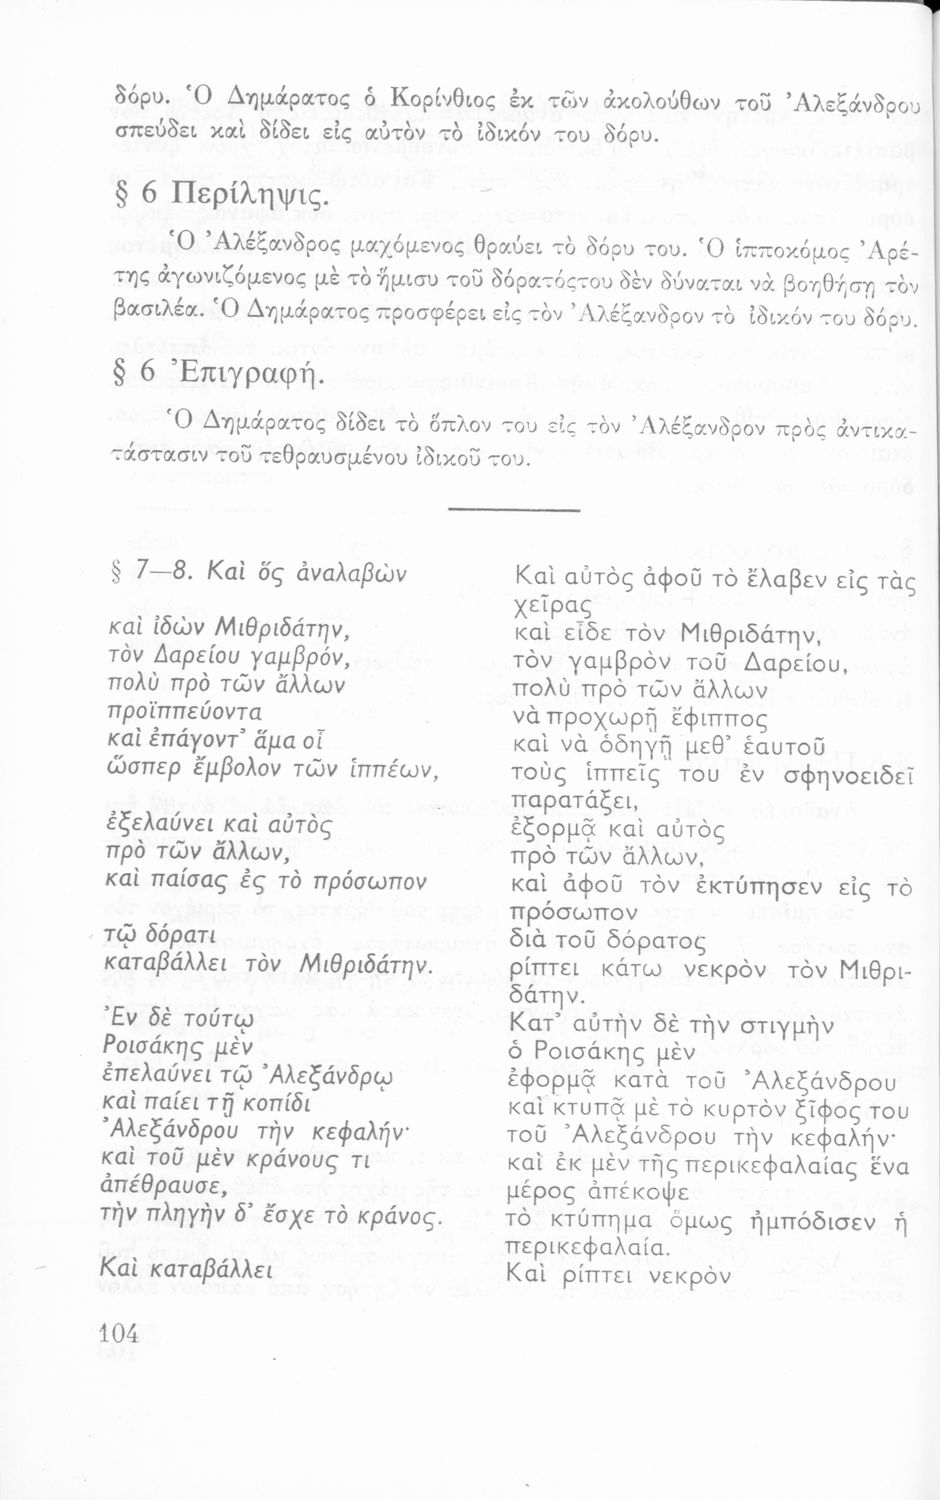 δόρυ. Ὁ Δημάρατος ὁ Κορίνθιος ἐκ τῶν ἀκολούθων τοῦ Ἀλεξάνδρου
σπεύδει καὶ δίδει εἰς αὐτὸν τὸ ἰδικόν του δόρυ.
§ 6 Περίληψις.
Ὁ Ἀλέξανδρος μαχόμενος θραύει τὸ δόρυ του. Ὁ ἱπποκόμος Ἀρέ-
της ἀγωνιζόμενος μὲ τὸ ἥμισυ τοῦ δόρατός του δὲν δύναται νὰ βοηθήσῃ τὸν
βασιλέα. Ὁ Δημάρατος προσφέρει εἰς τὸν Ἀλέξανδρον τὸ ἰδικόν του δόρυ.
§ 6 Ἐπιγραφή.
Ὁ Δημάρατος δίδει τὸ ὅπλον του εἰς τὸν Ἀλέξανδρον πρὸς ἀντικα-
τάστασιν τοῦ τεθραυσμένου ἰδικοῦ του.
§ 7—8. Καὶ ὅς ἀναλαβὼν
καὶ ἰδὼν Μιθριδάτην,
τὸν Δαρείου γαμβρόν,
πολὺ πρὸ τῶν ἄλλων
προϊππεύοντα
καὶ ἐπάγοντ’ ἅμα οἷ
ὥσπερ ἔμβολον τῶν ἱππέων,
ἐξελαύνει καὶ αὐτὸς
πρὸ τῶν ἄλλων,
καὶ παίσας ἐς τὸ πρόσωπον
τῷ δόρατι
καταβάλλει τὸν Μιθριδάτην.
Ἐν δὲ τούτῳ
Ροισάκης μὲν
ἐπελαύνει τῷ Ἀλεξάνδρῳ
καὶ παίει τῇ κοπίδι
Ἀλεξάνδρου τὴν κεφαλήν·
καὶ τοῦ μὲν κράνους τι
ἀπέθραυσε,
τὴν πληγὴν δ’ ἔσχε τὸ κράνος.
Καὶ καταβάλλει
Καὶ αὐτὸς ἀφοῦ τὸ ἔλαβεν εἰς τὰς
χεῖρας
καὶ εἶδε τὸν Μιθριδάτην,
τὸν γαμβρὸν τοῦ Δαρείου,
πολὺ πρὸ τῶν ἄλλων
νὰ προχωρῇ ἔφιππος
καὶ νὰ ὁδηγῇ μεθ’ ἑαυτοῦ
τοὺς ἱππεῖς του ἐν σφηνοειδεῖ
παρατάξει,
ἐξορμᾷ καὶ αὐτὸς
πρὸ τῶν ἄλλων,
καὶ ἀφοῦ τὸν ἐκτύπησεν εἰς τὸ
πρόσωπον
διὰ τοῦ δόρατος
ρίπτει κάτω νεκρὸν τὸν Μιθρι-
δάτην.
Κατ’ αὐτὴν δὲ τὴν στιγμὴν
ὁ Ροισάκης μὲν
ἐφορμᾷ κατὰ τοῦ Ἀλεξάνδρου
καὶ κτυπᾷ μὲ τὸ κυρτὸν ξῖφος του
τοῦ Ἀλεξάνδρου τὴν κεφαλήν·
καὶ ἐκ μὲν τῆς περικεφαλαίας ἕνα
μέρος ἀπέκοψε
τὸ κτύπημα ὅμως ἠμπόδισεν ἡ
περικεφαλαία.
Καὶ ρίπτει νεκρὸν
104